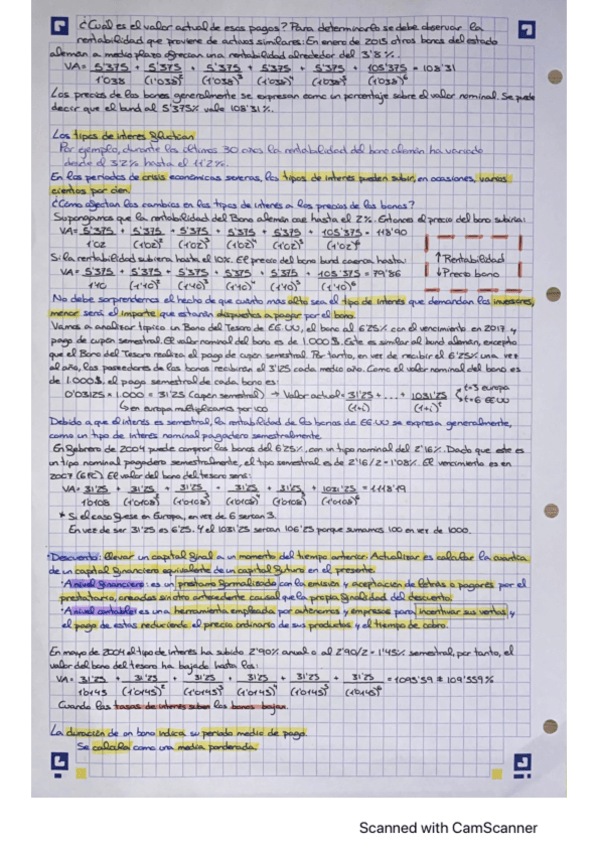 ¿Cuál es el valor actual de esos pagos? Para determinarlo se debe observar la
rentabilidad que proviene de activos similares: En enero de 2015 otros bonos del estado
alemán a medio plazo ofrecían una rentabilidad alrededor del 3'8%.
VA= 5'375/1'038 + 5'375/(1'038)² + 5'375/(1'038)³ + 5'375/(1'038)⁴ + 5'375/(1'038)⁵ + 105'375/(1'038)⁶ = 108'31
Los precios de los bonos generalmente se expresan como un porcentaje sobre el valor nominal. Se puede
decir que el bund al 5'375% vale 108'31%.
Los tipos de interés fluctúan
Por ejemplo, durante los últimos 30 años la rentabilidad del bono alemán ha variado
desde el 3'2% hasta el 11'2%.
En los periodos de crisis económicas severas, los tipos de interés pueden subir, en ocasiones, varios
cientos por cien.
¿Cómo afectan los cambios en los tipos de interés a los precios de los bonos?
Supongamos que la rentabilidad del Bono alemán cae hasta el 2%. Entonces el precio del bono subiría:
VA= 5'375/1'02 + 5'375/(1'02)² + 5'375/(1'02)³ + 5'375/(1'02)⁴ + 5'375/(1'02)⁵ + 105'375/(1'02)⁶ = 118'90
↑Rentabilidad
↓Precio bono
Si la rentabilidad subiera hasta el 10%. El precio del bono bund caería hasta:
VA= 5'375/1'10 + 5'375/(1'10)² + 5'375/(1'10)³ + 5'375/(1'10)⁴ + 5'375/(1'10)⁵ + 105'375/(1'10)⁶ = 79'86
No debe sorprendernos el hecho de que cuanto más alto sea el tipo de interés que demandan los inversores,
menor será el importe que estarán dispuestos a pagar por el bono.
Vamos a analizar típico un Bono del Tesoro de EEUU, el bono al 6'25% con el vencimiento en 2017 y
pago de cupón semestral. El valor nominal del bono es de 1.000$. Este es similar al bund alemán, excepto
que el Bono del Tesoro realiza el pago de cupón semestral. Por tanto, en vez de recibir el 6'25% una vez
al año, los poseedores de los bonos recibirán el 3'125 cada medio año. Como el valor nominal del bono es
de 1.000$. el pago semestral de cada bono es:
0'03125 × 1.000 = 31'25 (cupón semestral) → Valor actual = 31'25/(1+i) + ... + 1031'25/(1+i)ᵗ
t=3 europa
t=6 EEUU
↳ en europa multiplicamos por 100
Debido a que el interés es semestral, la rentabilidad de los bonos de EEUU se expresa generalmente,
como un tipo de interés nominal pagadero semestralmente.
En febrero de 2004 puede comprar los bonos del 6'25%, con un tipo nominal del 2'16%. Dado que este es
un tipo nominal pagadero semestralmente, el tipo semestral es de 2'16/2 = 1'08%. El vencimiento es en
2007 (6 FC) El valor del bono del tesoro será:
VA= 31'25/1'0108 + 31'25/(1'0108)² + 31'25/(1'0108)³ + 31'25/(1'0108)⁴ + 31'25/(1'0108)⁵ + 1031'25/(1'0108)⁶ = 1118'19
* Si el caso fuese en Europa, en vez de 6 serían 3.
En vez de ser 31'25 es 6'25. Y el 1031'25 serían 106'25 porque sumamos 100 en vez de 1000.
· Descuento: llevar un capital final a un momento del tiempo anterior. Actualizar es calcular la cuantía
de un capital financiero equivalente de un capital futuro en el presente.
· A nivel financiero: es un préstamo formalizado con la emisión y aceptación de letras o pagarés por el
prestatario, creadas sin otro antecedente causal que la propia finalidad del descuento.
· A nivel contable: es una herramienta empleada por autónomos y empresas para incentivar sus ventas y
el pago de estas reduciendo el precio ordinario de sus productos y el tiempo de cobro.
En mayo de 2004 el tipo de interés ha subido 2'90% anual o al 2'90/2 = 1'45% semestral, por tanto, el
valor del bono del tesoro ha bajado hasta los:
VA= 31'25/1'0145 + 31'25/(1'0145)² + 31'25/(1'0145)³ + 31'25/(1'0145)⁴ + 31'25/(1'0145)⁵ + 31'25/(1'0145)⁶ = 1095'59 ≠ 109'559%
Cuando las tasas de interés suben los bonos bajan.
La duración de un bono indica su periodo medio de pago.
Se calcula como una media ponderada.
Scanned with CamScanner